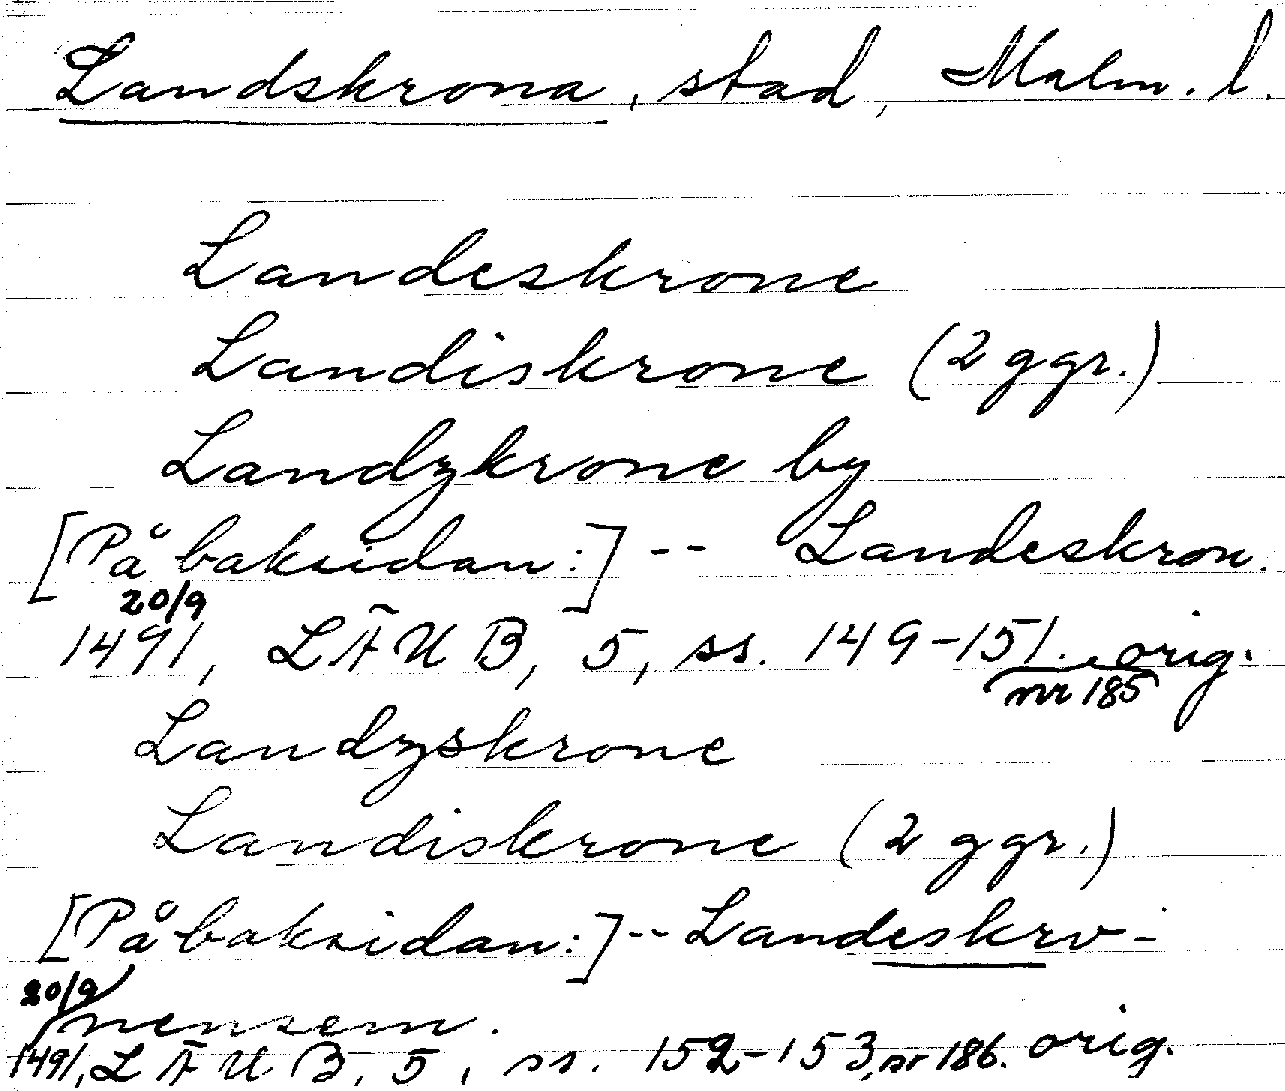 Landskrona, stad, Malm. l.
Landeskrone
Landiskrone (2 ggr.)
Landzkrone by
[På baksidan:] -- Landeskron.
20/9
1491, LÄUB, 5, ss. 149-151. orig.
nr 185
Landzskrone
Landiskrone (2 ggr.)
[På baksidan:] -- Landeskro-
20/9
nensem.
1491, LÄUB, 5, ss. 152-153, nr 186. orig.